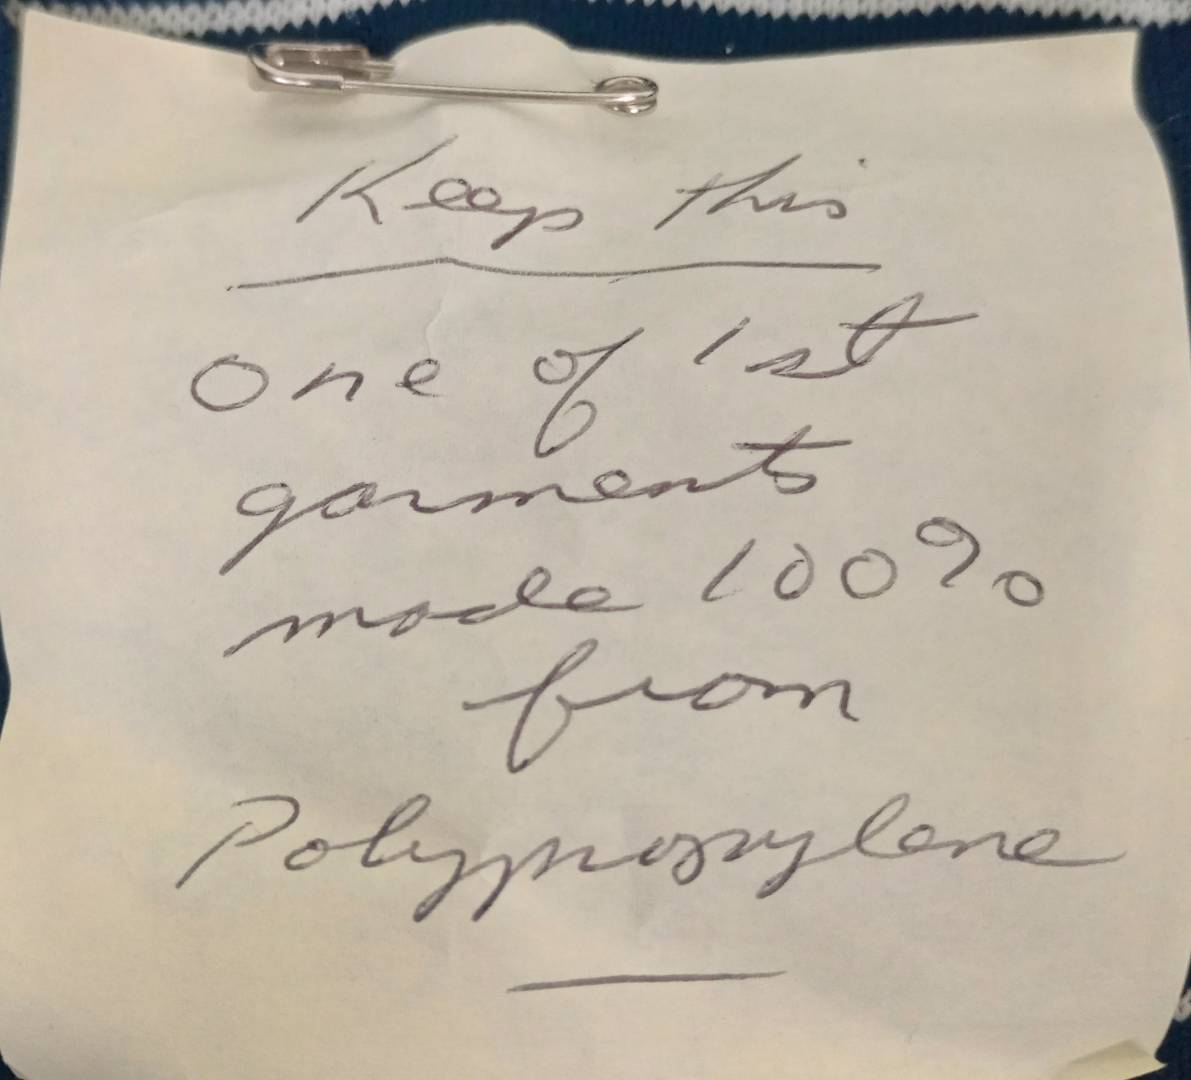 Keep this
One of 1st
garments
made 100%
from
Polypropylene